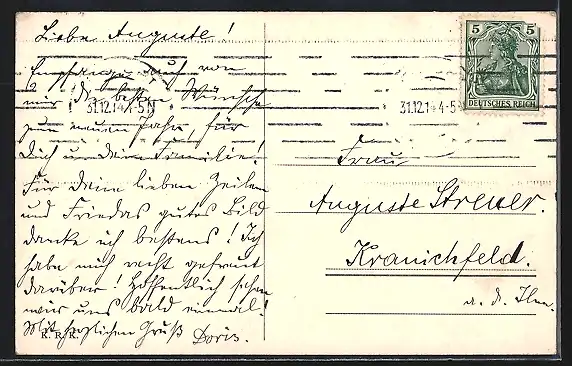 Liebe Auguste!
Empfange auch von
mir die besten Wünsche
zum neuen Jahr, für
Dich u. deine Familie!
Für deine lieben Zeilen
und Friedas gutes Bild
danke ich bestens! Ich
habe mich recht gefreut
darüber! Hoffentlich sehen
wir uns bald einmal!
Mit herzlichen Gruß Doris.
K. R. K.
31.12.14 4-5 N
31.12.14 4-5
5 5
DEUTSCHES REICH
Frau
Auguste
Kranichfeld.
a. d. Ilm.